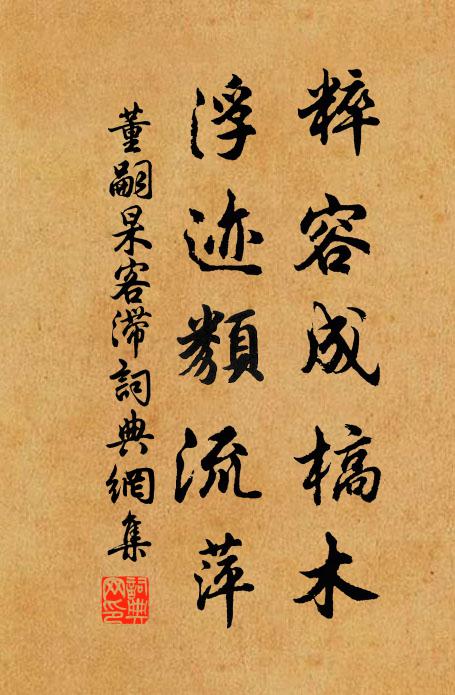 粹容成槁木
浮迹類流萍
董嗣杲客滯詞典網集
詞典網印